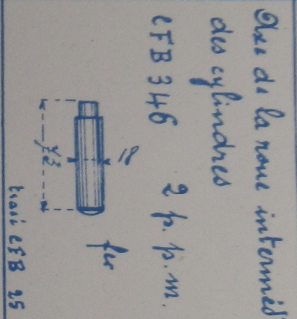 Axe de la roue interméd
des cylindres
CFB 346 2 p. p. m.
18
73
fer
tracé CFB 25